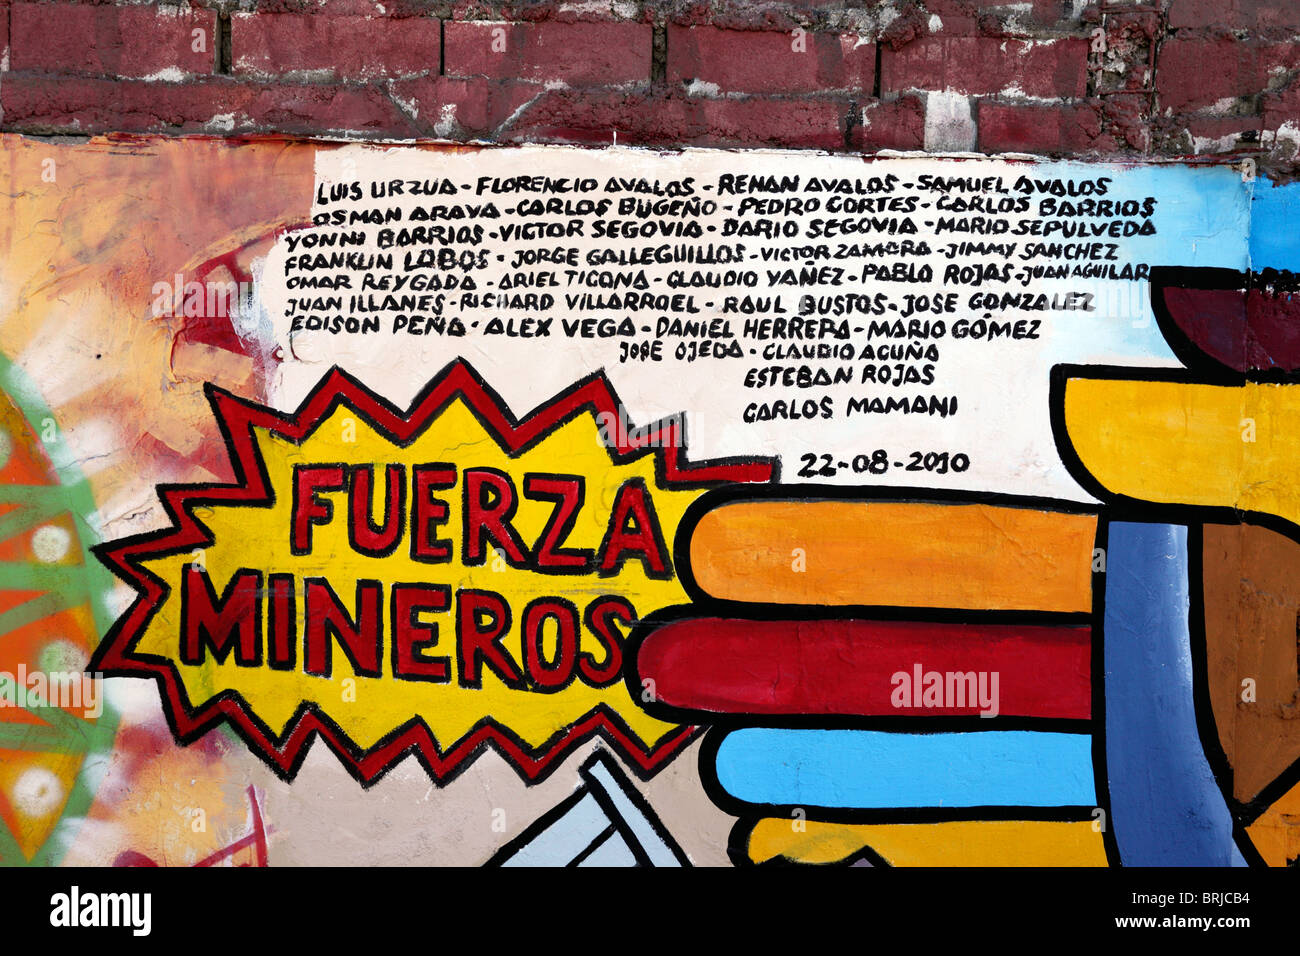 LUIS URZUA - FLORENCIO AVALOS - RENAN AVALOS - SAMUEL AVALOS
OSMAN ARAYA - CARLOS BUGEÑO - PEDRO CORTES - CARLOS BARRIOS
YONNI BARRIOS - VICTOR SEGOVIA - DARIO SEGOVIA - MARIO SEPULVEDA
FRANKLIN LOBOS - JORGE GALLEGUILLOS - VICTOR ZAMORA - JIMMY SANCHEZ
OMAR REYGADA - ARIEL TICONA - CLAUDIO YAÑEZ - PABLO ROJAS - JUAN AGUILAR
JUAN ILLANES - RICHARD VILLARROEL - RAUL BUSTOS - JOSE GONZALEZ
EDISON PEÑA - ALEX VEGA - DANIEL HERRERA - MARIO GÓMEZ
JOSE OJEDA - CLAUDIO ACUÑA
ESTEBAN ROJAS
CARLOS MAMANI
22-08-2010
FUERZA
MINEROS
alamy
alamy
Image ID: BRJCB4
www.alamy.com